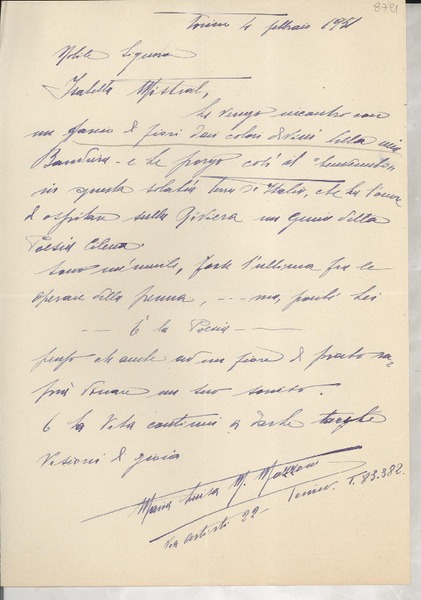 8791
Torino 4 febbraio 1951
Nobile Signora
Isabella Mistral,
Le vengo incontro con
un fascio di fiori dai colori diversi della mia
Bandiera - e Le porgo così il "benvenuto"
in questa solatia terra d'Italia, che ha l'onore
di ospitare sulla Riviera un Genio della
Poesia Cilena.
Sono un'umile, forse l'ultima fra le
operaie della penna, --- ma, poichè Lei
--- è la Poesia ---
penso che anche ad un fiore di prato sa=
prà donare un suo sorriso.
E la Vita continui a darle
Visioni di gioia
Maria Luisa M. Mazzoni
Via Artisti 22 - Torino. T. 83.382.